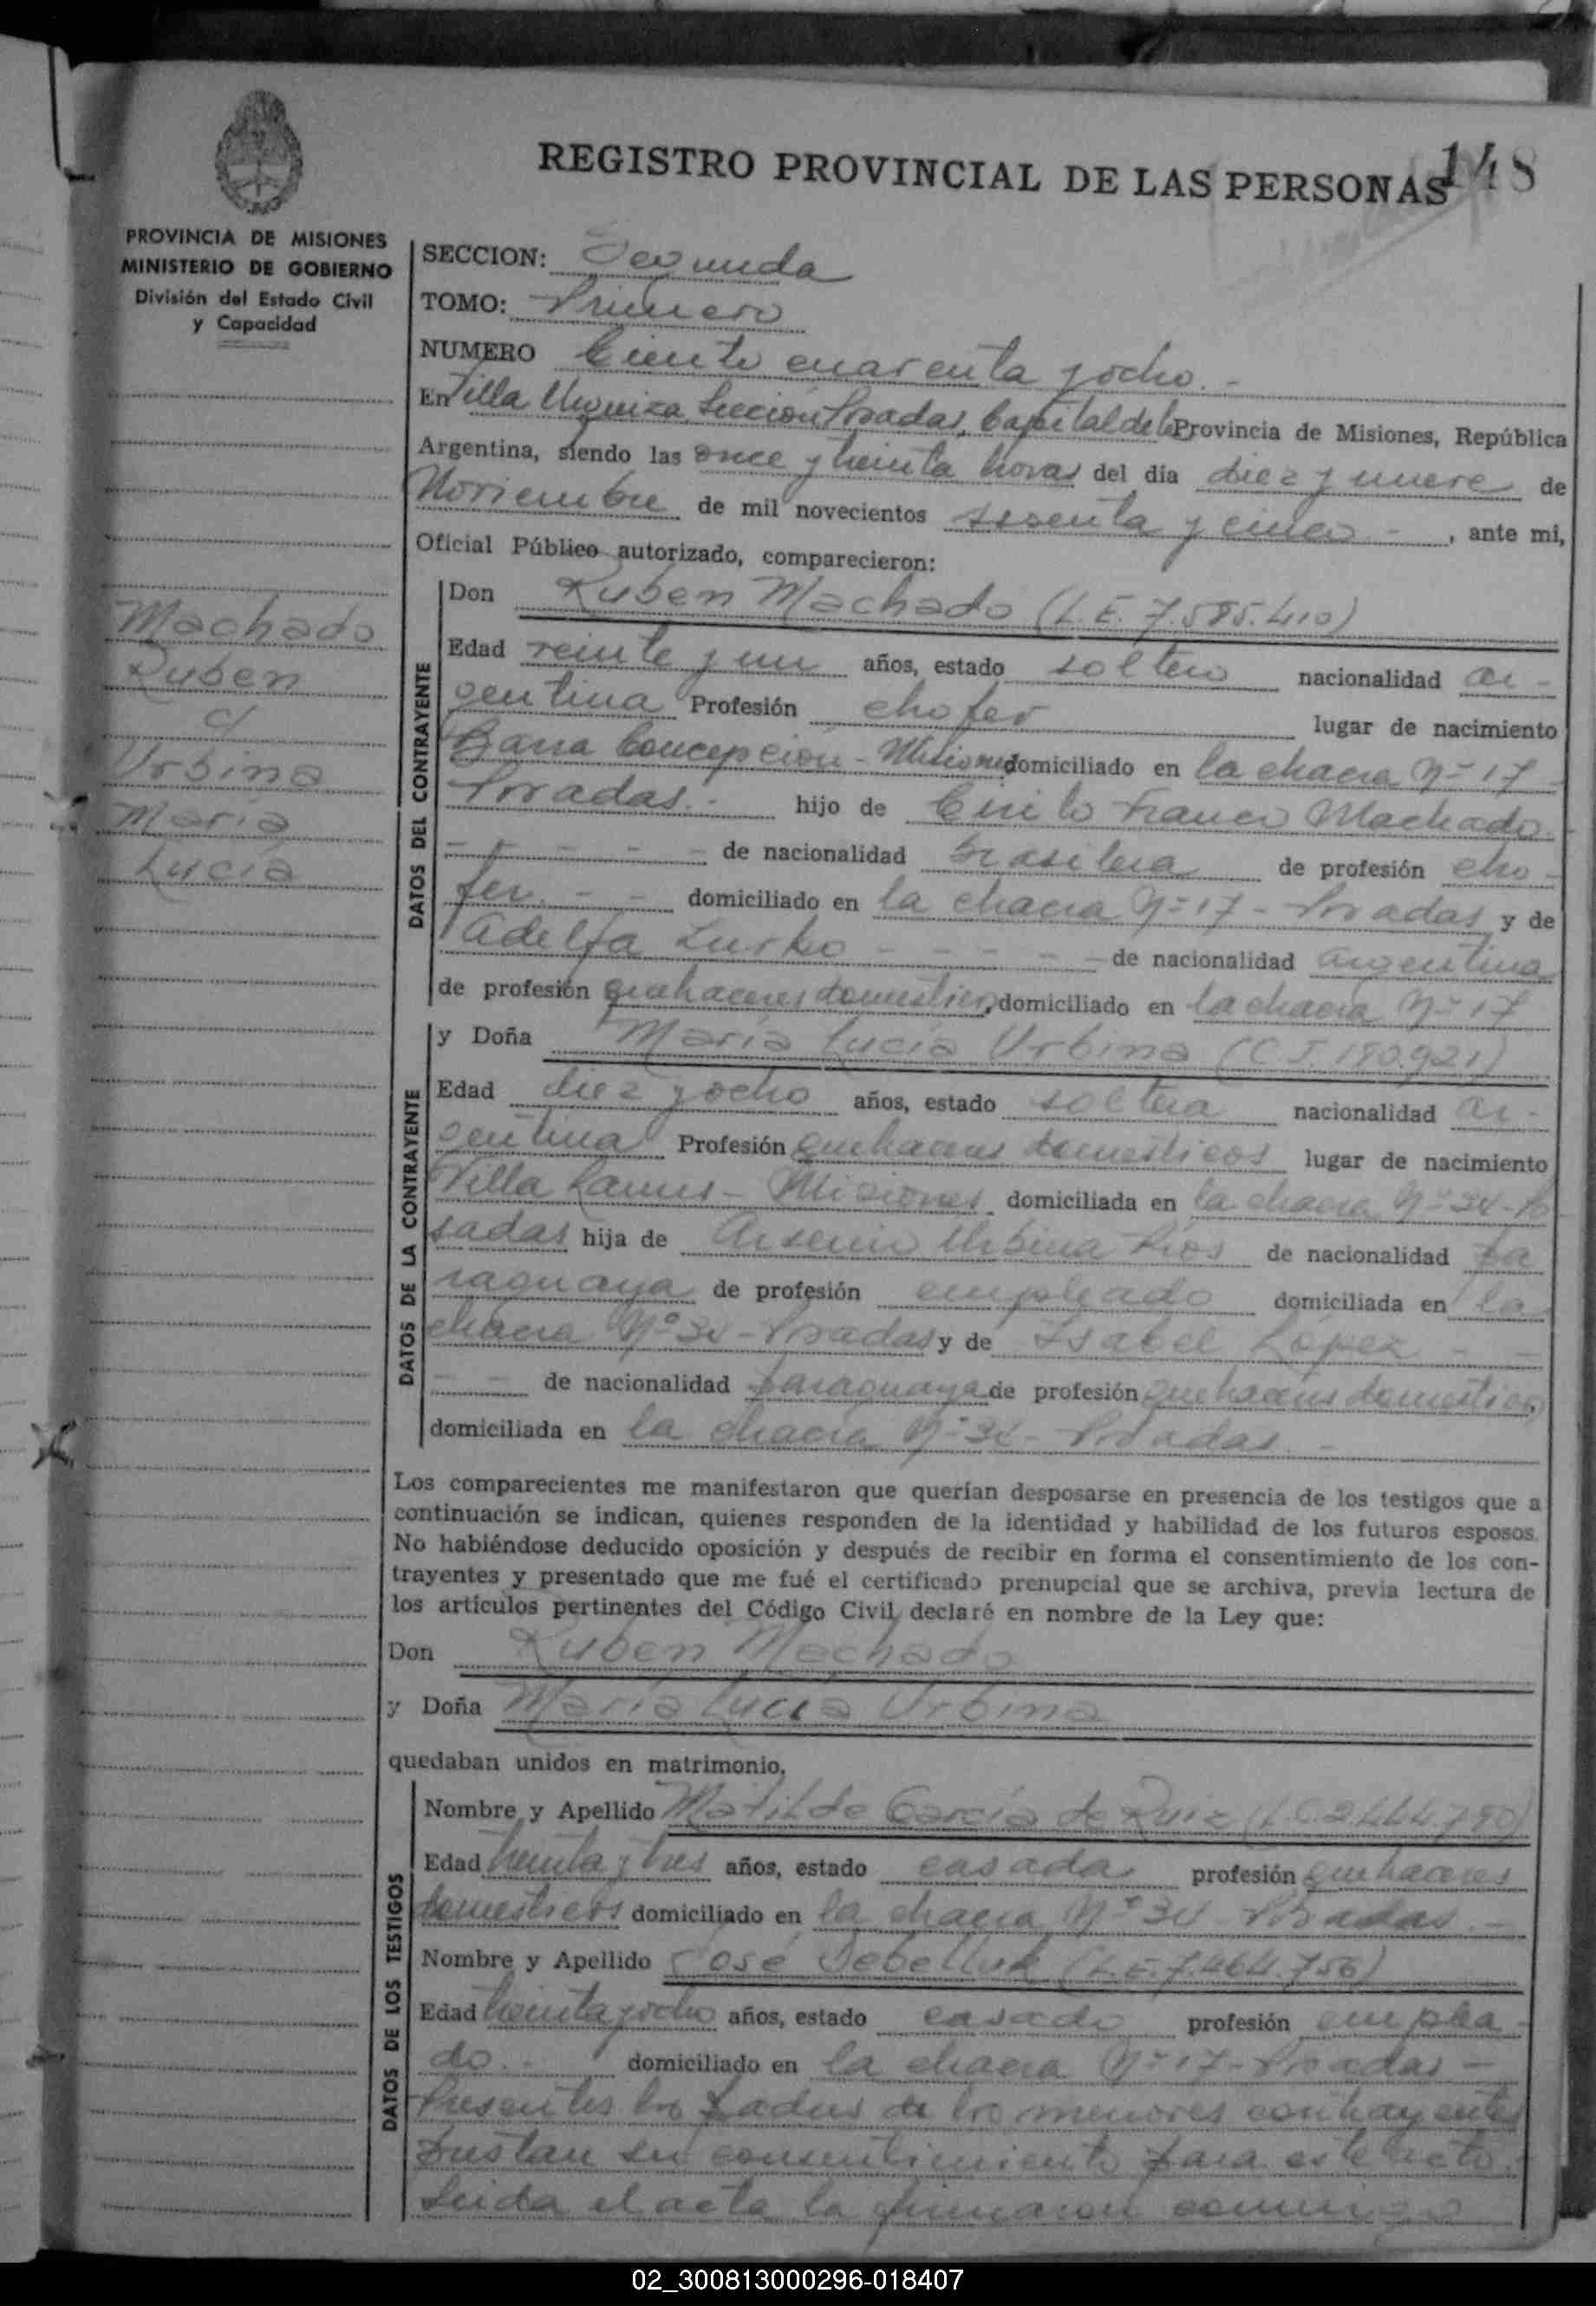 148
REGISTRO PROVINCIAL DE LAS PERSONAS
PROVINCIA DE MISIONES
MINISTERIO DE GOBIERNO
División del Estado Civil
y Capacidad
SECCION: Segunda
TOMO: Primero
NUMERO Ciento cuarenta y ocho.-
En Villa Urquiza Sección Posadas, Capital de la Provincia de Misiones, República
Argentina, siendo las once y treinta horas del día diez y nueve de
Noviembre de mil novecientos sesenta y cinco -, ante mi,
Oficial Público autorizado, comparecieron:
Machado
Ruben
c/
Urbina
María
Lucía
DATOS DEL CONTRAYENTE
Don Ruben Machado (L.E. 7.585.410)
Edad veinte y un años, estado soltero nacionalidad ar-
gentina Profesión chofer lugar de nacimiento
Barra Concepción - Misiones domiciliado en la chacra Nº 17
Posadas.- hijo de Cirilo Franco Machado.
- - - - - de nacionalidad brasilera de profesión cho-
fer. - - domiciliado en la chacra Nº 17 - Posadas y de
Adelfa - - - - - de nacionalidad argentina
de profesión quehaceres domesticos, domiciliado en la chacra Nº 17
DATOS DE LA CONTRAYENTE
y Doña María Lucía Urbina (C.I. 180.921)
Edad diez y ocho años, estado soltera nacionalidad ar-
gentina Profesión quehaceres domesticos lugar de nacimiento
Villa Lanus - Misiones domiciliada en la chacra Nº 34 - Po
sadas hija de Arsenio Urbina Rios de nacionalidad pa
raguaya de profesión empleado domiciliada en la
chacra Nº 34 - Posadas y de Isabel López - -
- - de nacionalidad paraguaya de profesión quehaceres domesticos
domiciliada en la chacra Nº 34 - Posadas. -
Los comparecientes me manifestaron que querían desposarse en presencia de los testigos que a
continuación se indican, quienes responden de la identidad y habilidad de los futuros esposos.
No habiéndose deducido oposición y después de recibir en forma el consentimiento de los con-
trayentes y presentado que me fué el certificado prenupcial que se archiva, previa lectura de
los artículos pertinentes del Código Civil, declaré en nombre de la Ley que:
Don Ruben Machado
y Doña María Lucía Urbina
quedaban unidos en matrimonio.
DATOS DE LOS TESTIGOS
Nombre y Apellido Matilde García de Ruiz (L.C. 2.444.790)
Edad treinta y tres años, estado casada profesión quehaceres
domesticos domiciliado en la chacra Nº 34 Posadas. -
Nombre y Apellido José (L.E. 7.464.756)
Edad treinta y ocho años, estado casado profesión emplea-
do.- domiciliado en la chacra Nº 17 - Posadas -
Presentes los padres de los menores contrayentes
prestan su consentimiento para este acto.
Leida el acta la firmaron conmigo
02_300813000296-018407